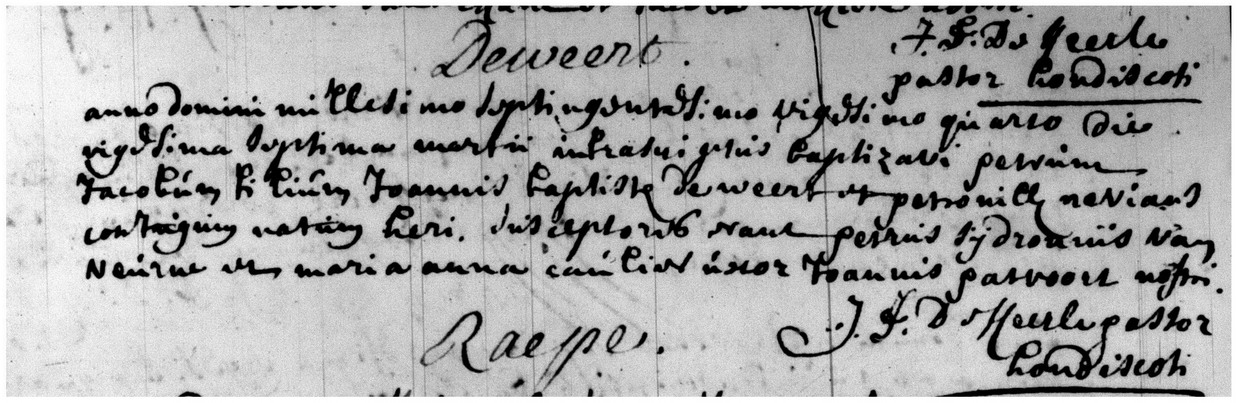 Deweert.
J. F. De Heerle
pastor hondiscoti
anno domini millesimo septingentesimo vigesimo quarto die
vigesima septima martii infrascriptus baptizavi petrum
Jacobum filium Joannis baptiste de weert et petronille
conjugum natum heri. susceptores erant petrus sydronius van
veurne et maria anna uxor Joannis nostri.
J. F. De Heerle pastor
hondiscoti
Raepe.